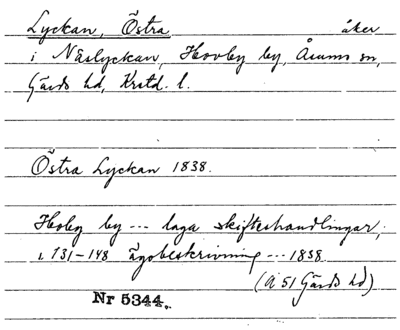 Lyckan, Östra åker
i Näslyckan, Hovby by, Åsums sn,
Gärds hd, Krstd. l.
Östra Lyckan 1838.
Hoby by --- laga skifteshandlingar,
s 131-148 ägobeskrivning --- 1838
(Å 51 Gärds hd)
Nr 5344.